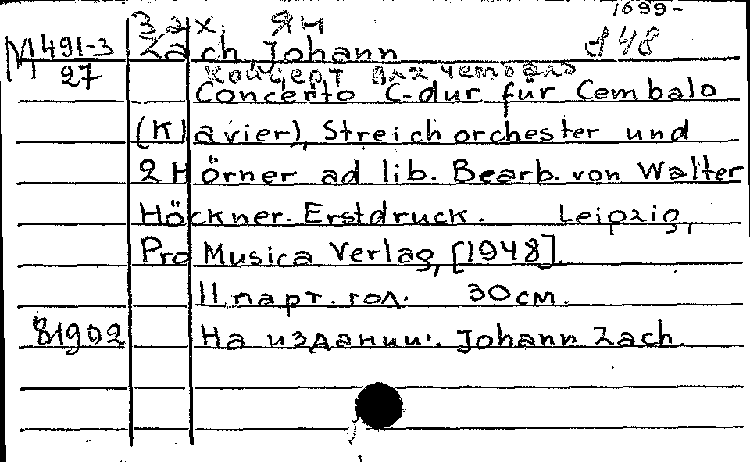 Зах, Ян 1699-
М 491-3 Zach Johann
27 Концерт для чембало 948
Concerto C-dur für Cembalo
(Klavier), Streichorchester und
2 Hörner ad lib. Bearb. von Walter
Höckner. Erstdruck. Leipzig,
Pro Musica Verlag, [1948].
11, парт. гол. 30 см.
81902 На издании: Johann Zach.